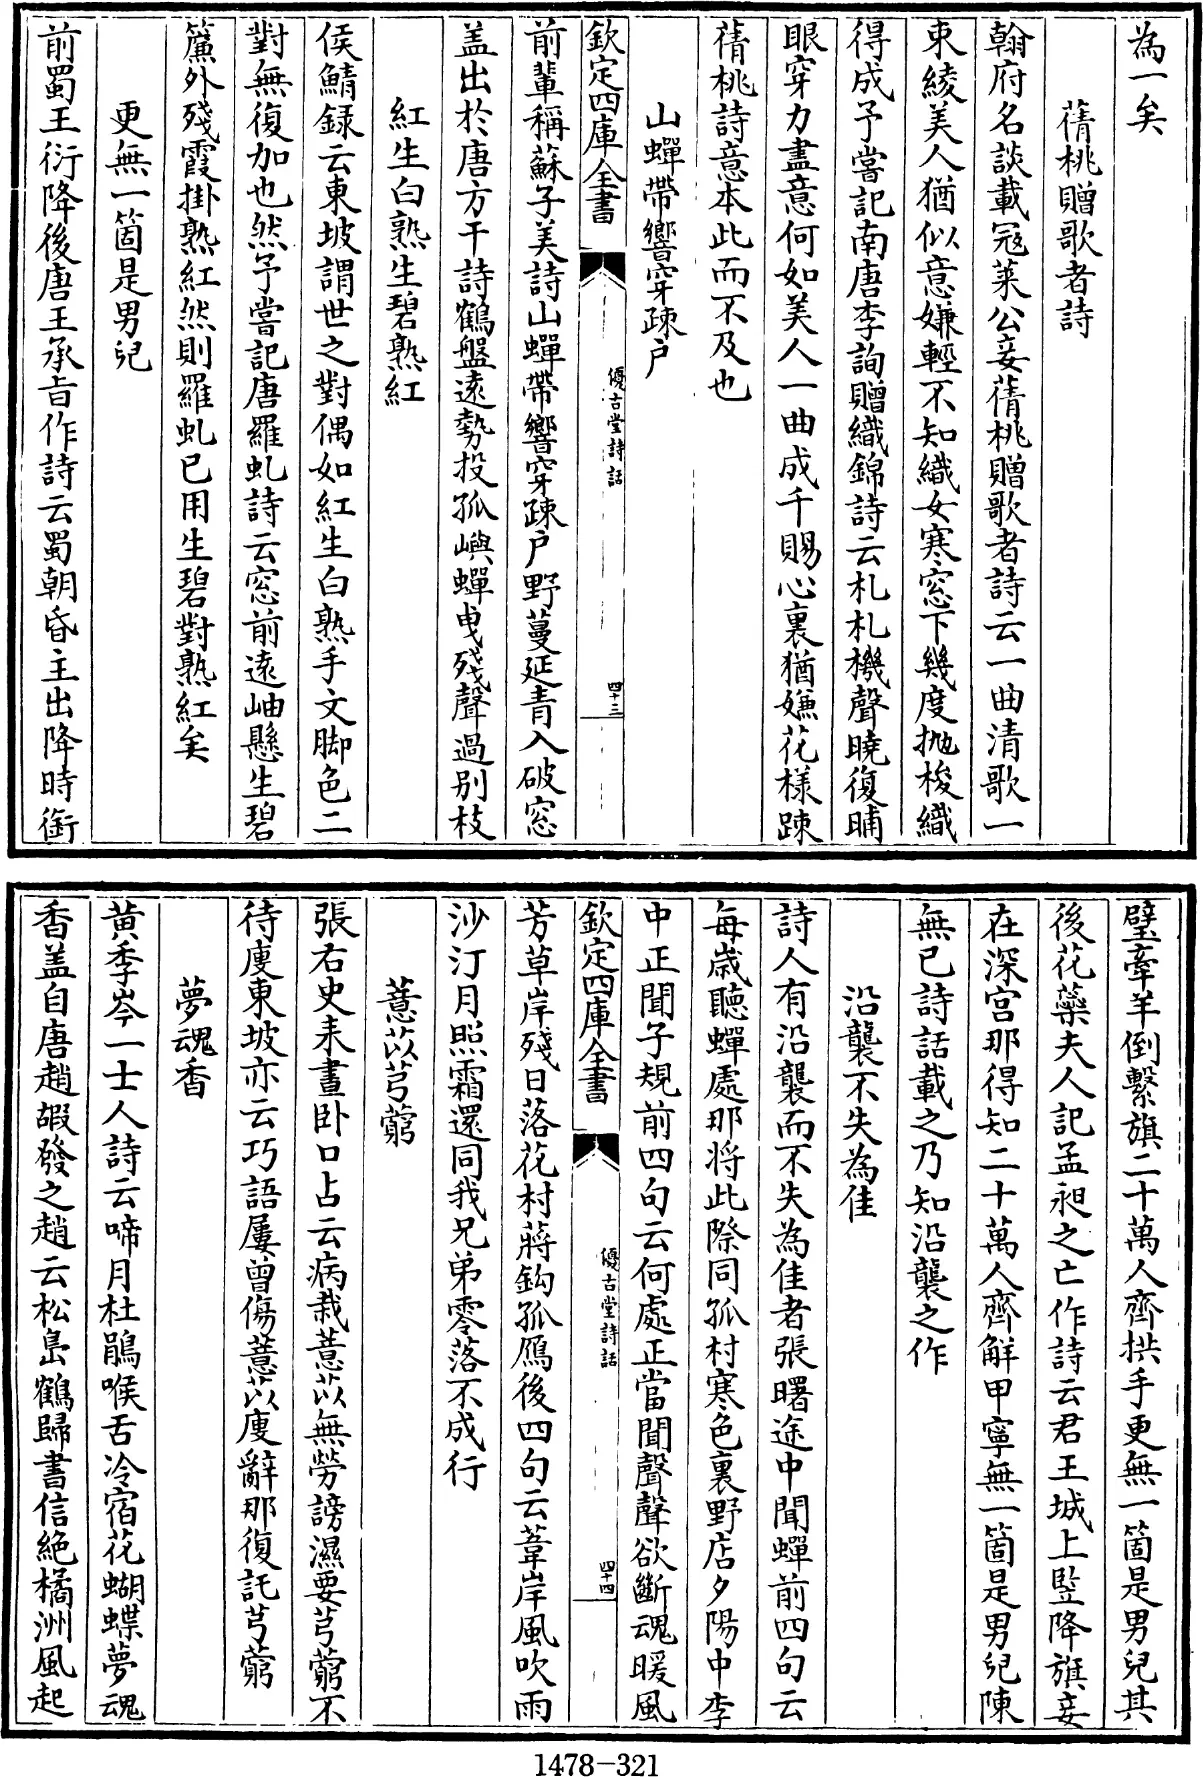 為一矣
蒨桃贈歌者詩
翰府名談載冦萊公妾蒨桃贈歌者詩云一曲清歌一
束綾美人猶似意嫌輕不知織女寒窓下幾度抛梭織
得成予嘗記南唐李詢贈織錦詩云札札機聲曉復晡
眼穿力盡意何如美人一曲成千賜心裏猶嫌花樣踈
蒨桃詩意本此而不及也
山蟬帶響穿疎户
欽定四庫全書
優古堂詩話
四十三
前輩稱蘇子美詩山蟬帶響穿疎户野蔓延青入破窓
盖出於唐方干詩鶴盤逺勢投孤嶼蟬曳殘聲過别枝
紅生白熟生碧熟紅
侯鯖録云東坡謂世之對偶如紅生白熟手文脚色二
對無復加也然予嘗記唐羅虬詩云窓前逺岫懸生碧
簾外殘霞掛熟紅然則羅虬已用生碧對熟紅矣
更無一箇是男兒
前蜀王衍降後唐王承㫖作詩云蜀朝昏主出降時銜
璧牽羊倒繫旗二十萬人齊拱手更無一箇是男兒其
後花蘂夫人記孟昶之亡作詩云君王城上竪降旗妾
在深宫那得知二十萬人齊解甲寧無一箇是男兒陳
無已詩話載之乃知沿襲之作
沿襲不失為佳
詩人有沿襲而不失為佳者張曙途中聞蟬前四句云
每歳聽蟬處那将此際同孤村寒色裏野店夕陽中李
中正聞子規前四句云何處正當聞聲聲欲斷魂暖風
欽定四庫全書
優古堂詩話
四十四
芳草岸殘日落花村蔣鈎孤鴈後四句云葦岸風吹雨
沙汀月照霜還同我兄弟零落不成行
薏苡芎藭
張右史耒晝卧口占云病栽薏苡無勞謗濕要芎藭不
待廋東坡亦云巧語屢曾傷薏苡廋辭那復託芎藭
夢魂香
黄季岑一士人詩云啼月杜鵑喉舌冷宿花蝴蝶夢魂
香盖自唐趙嘏發之趙云松島鶴歸書信絶橘洲風起
1478-321